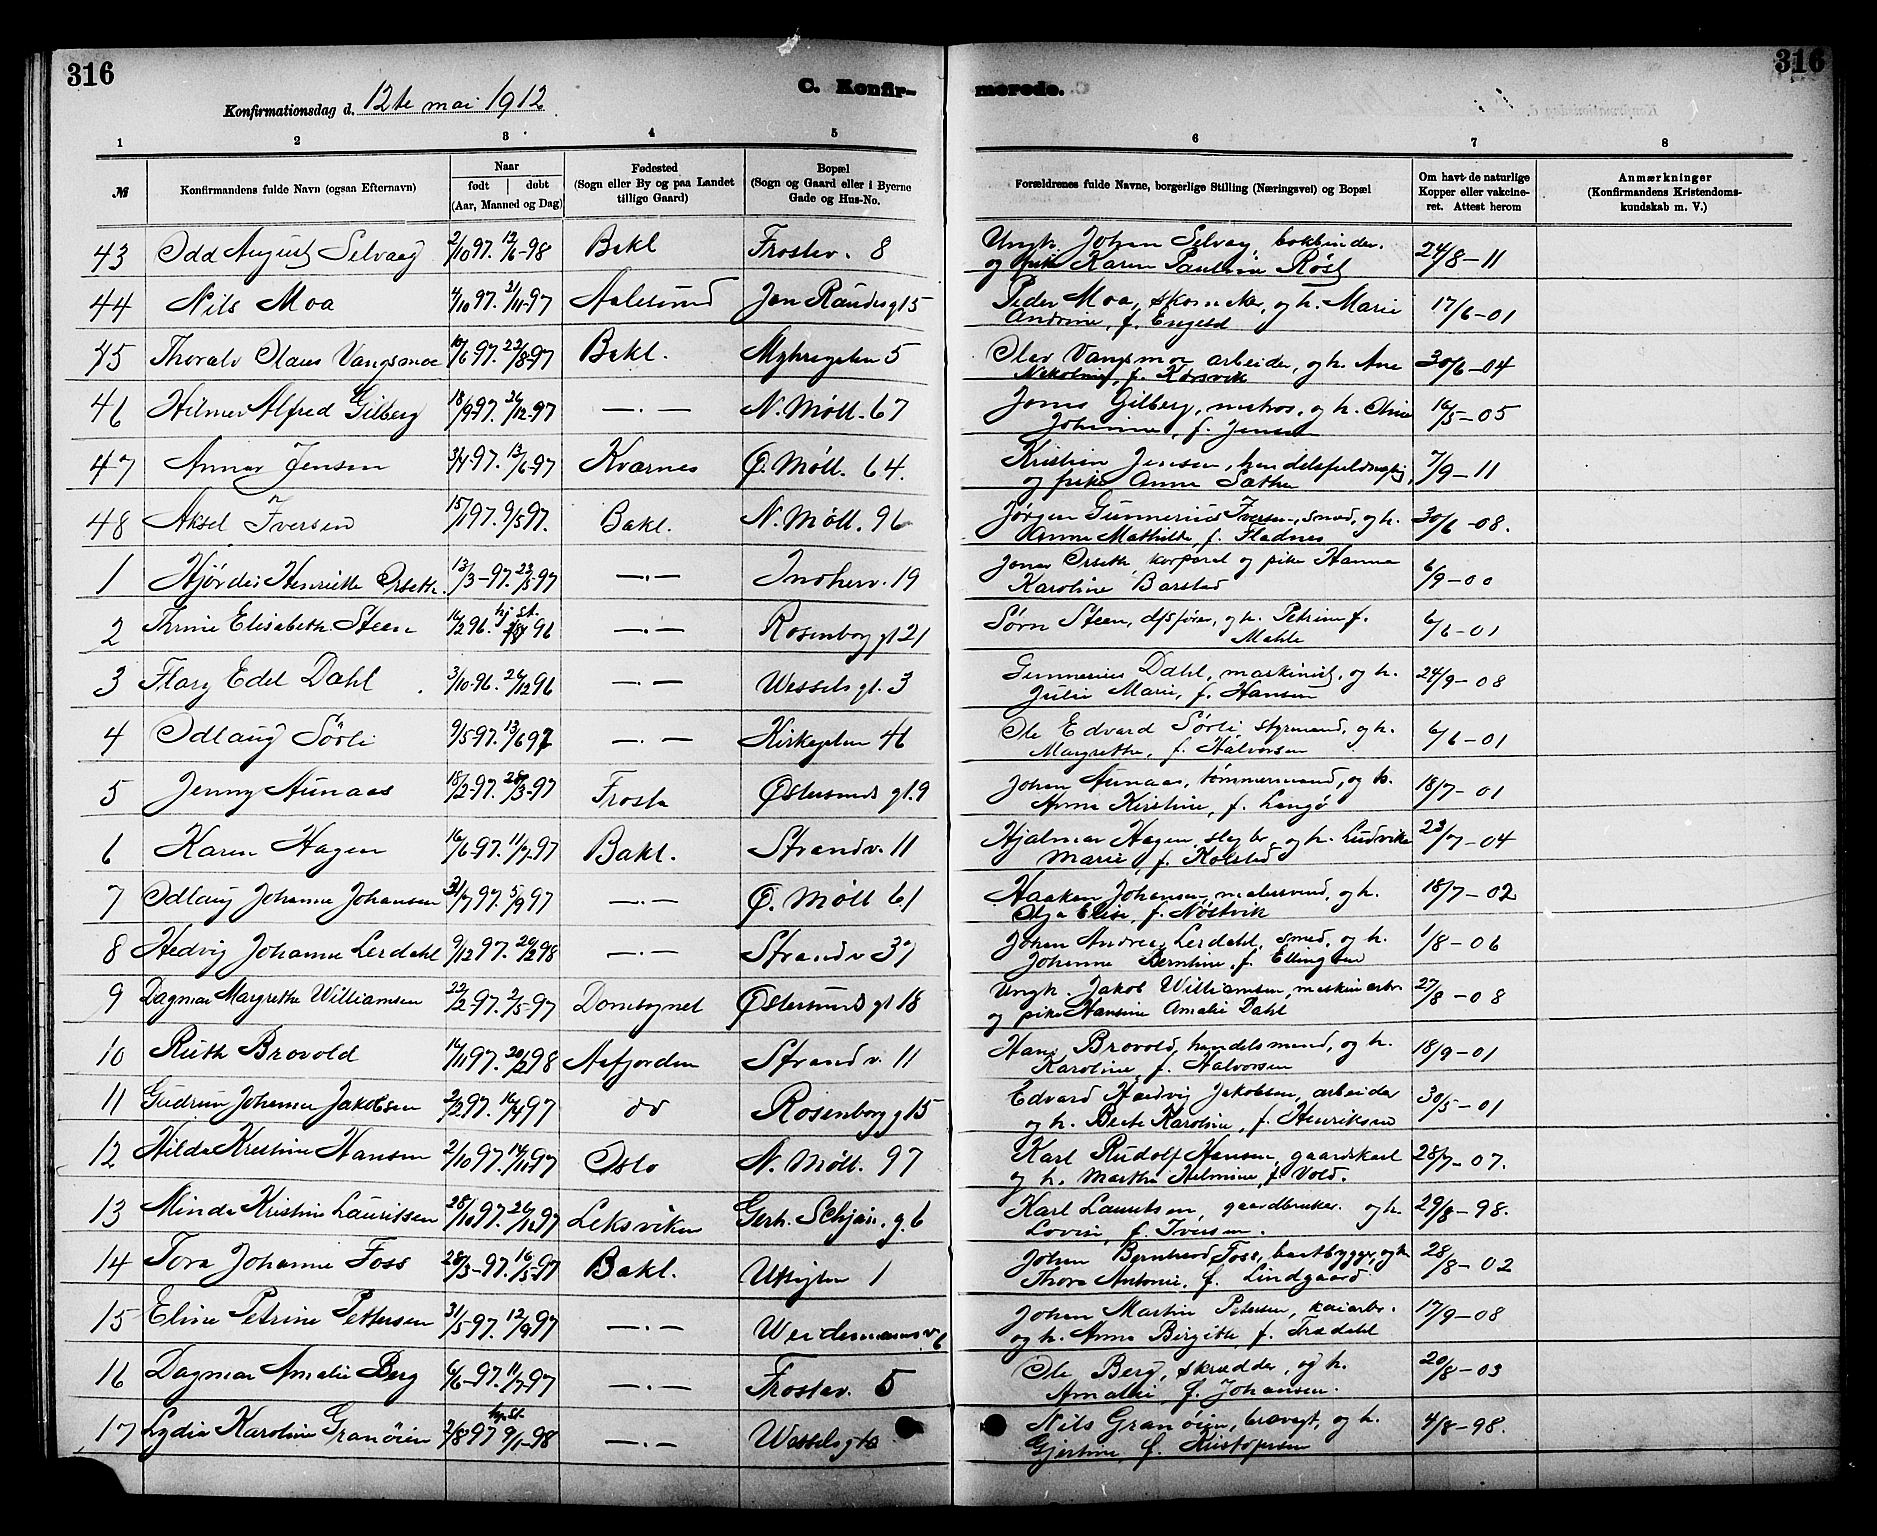 316
C. Konfir-
merede.
316
Konfirmationsdag d. 12te mai 1912
1 2 3 4 5 6 7 8
№
Konfirmandens fulde Navn (ogsaa Efternavn)
Naar
født døbt
(Aar, Maaned og Dag)
Fødested
(Sogn eller By og paa Landet
tillige Gaard)
Bopæl
(Sogn og Gaard eller i Byerne
Gade og Hus-No.
Forældrenes fulde Navne, borgerlige Stilling (Næringsvei) og Bopæl
Om havt de naturlige
Kopper eller vakcine-
ret. Attest herom
Anmærkninger
(Konfirmandens Kristendoms-
kundskab m. V.)
43 Odd August Selvaag 2/10 97. 12/6-98 Bakl Frostav. 8 Ungk. Johan Selvaag, bokbinder. 24/8-11
og pike Karen Pauline Röst
44 Nils Moa 4/10 97. 21/11-97 Aalesund Jon Raudes g 15 Peder Moa, skomaker, og h. Marie 17/6-01
Andrine, f. Engeld
45 Thoralv Olaus Vangsmoe 10/6 97. 22/8-97 Bakl. Myhregaten 5 Olav Vangsmoe arbeider, og h. Ane 30/6-04
Nikoline, f. Korsvik
46 Hilmer Alfred Gilberg 18/9 97. 26/12-97 —.— N. Möll. 67 Jons Gilberg, matros, og h. Oline 16/5-05
Johanna, f. Jensen
47 Annar Jensen 3/4-97. 13/6-97 Kvernes Ö. Möll. 64. Kristian Jensen, handelsfuldmægtig, 7/9-11
og pike Anna Sæther
48 Aksel Iversen 15/1 97. 9/5 97. Bakl. N. Möll. 96 Jørgen Gunnerius Iversen, smed, og h. 30/6-08.
Anna Mathilde, f. Fladnes
1 Hjördis Henriette Orseth. 13/3-97. 23/5-97 —.— Inoherv. 19 Jonas Orseth, korporal og pike Hanna 6/9-00
Karoline Barstad
2 Thrine Elisabeth Steen 16/2 96. hj. st. 96 —.— Rosenborg gt 21 Sörn Steen, dfsfører, og h. Petrine f. 6/6-01
Mahle
3 Flary Edel Dahl 3/10-96. 26/12 96 —.— Wessels gt. 3 Gunnerius Dahl, maskinist, og h. 24/9-08
Julie Marie, f. Hansen
4 Odlaug Sörli 9/5-97. 13/6 97 —.— Kirkegaten 46 Ole Edvard Sörli, styrmand, og h. 6/6-01
Margrethe, f. Halvorsen
5 Jenny Aunaas 18/2-97. 28/3-97 Frosta Östersunds gt. 9 Johan Aunaas, tömmermand, og h. 18/7-01
Anna Kirstine, f. Langö
6 Karen Hagen 16/6-97. 11/7-97 Bakl. Strandv. 11 Hjalmar Hagen, sleg br, og h. Ludvika 23/7-04
Marie, f. Kolstad
7 Odlaug Johanne Johansen 31/7 97. 5/9 97 —.— Ö. Möll 61 Haakon Johansen, malersvend, og h. 18/7-02
Olga Elise, f. Nöstvik
8 Hedvig Johanne Lerdahl 9/12 97. 20/2 98 —.— Strandv 37 Johan Andreas Lerdahl, smed, og h. 1/8-06
Johanne Berntine, f. Ellingsen
9 Dagmar Margrethe Williamsen 22/2-97. 2/5-97 Domsognet Östersunds gt 18 Ungk. Jakob Williamsen, maskinarb. 27/8-08
og pike Hansine Amalie Dahl
10 Ruth Brovold 14/11 97. 20/2 98 Aafjorden Strandv. 11 Hans Brovold, handelsmand, og h. 18/9-01
Karoline, f. Halvorsen
11 Gudrun Johanne Jakobsen 2/2 97. 16/4 97 do Rosenborg g 15 Edvard Hardvig Jakobsen, arbeider 30/5-01
og h. Berte Karoline, f. Henriksen
12 Hilda Kristine Hansen 2/10 97. 14/11 97 Oslo N. Möll. 97 Karl Rudolf Hansen, gaardskarl 28/7-07.
og h. Marthe Helmine, f. Vold.
13 Minda Kristine Lauritsen 28/10 97. 26/12 97 Leksviken Gerh. Schjön. g. 6 Karl Lauritsen, gaardbruker og h. 29/8-98.
Lovise, f. Iversen.
14 Tora Johanne Foss 28/3-97. 16/5-97 Bakl. Ulstigten 1 Johan Bernhard Foss, baatbygger, og h 28/8-02
Thora Antonie, f. Lindgaard
15 Eline Petrine Pettersen 31/5-97. 12/9 97 —.— Weidemannsv. 6 Johan Martin Petersen, kaiarb. 17/9-08
og h. Anna Birgitte f. Trædahl
16 Dagmar Amalie Berg 6/6-97. 11/7-97 —.— Frostav. 5 Ole Berg, skrædder, og h. 20/8-03
Amalie f. Johansen.
17 Lydia Karoline Granöien 2/8 97 hj. st. 9/1-98 —.— Wesselsgt Nils Granöien, brævagt, og h. 4/8-98.
Gjertine, f. Kristofersen